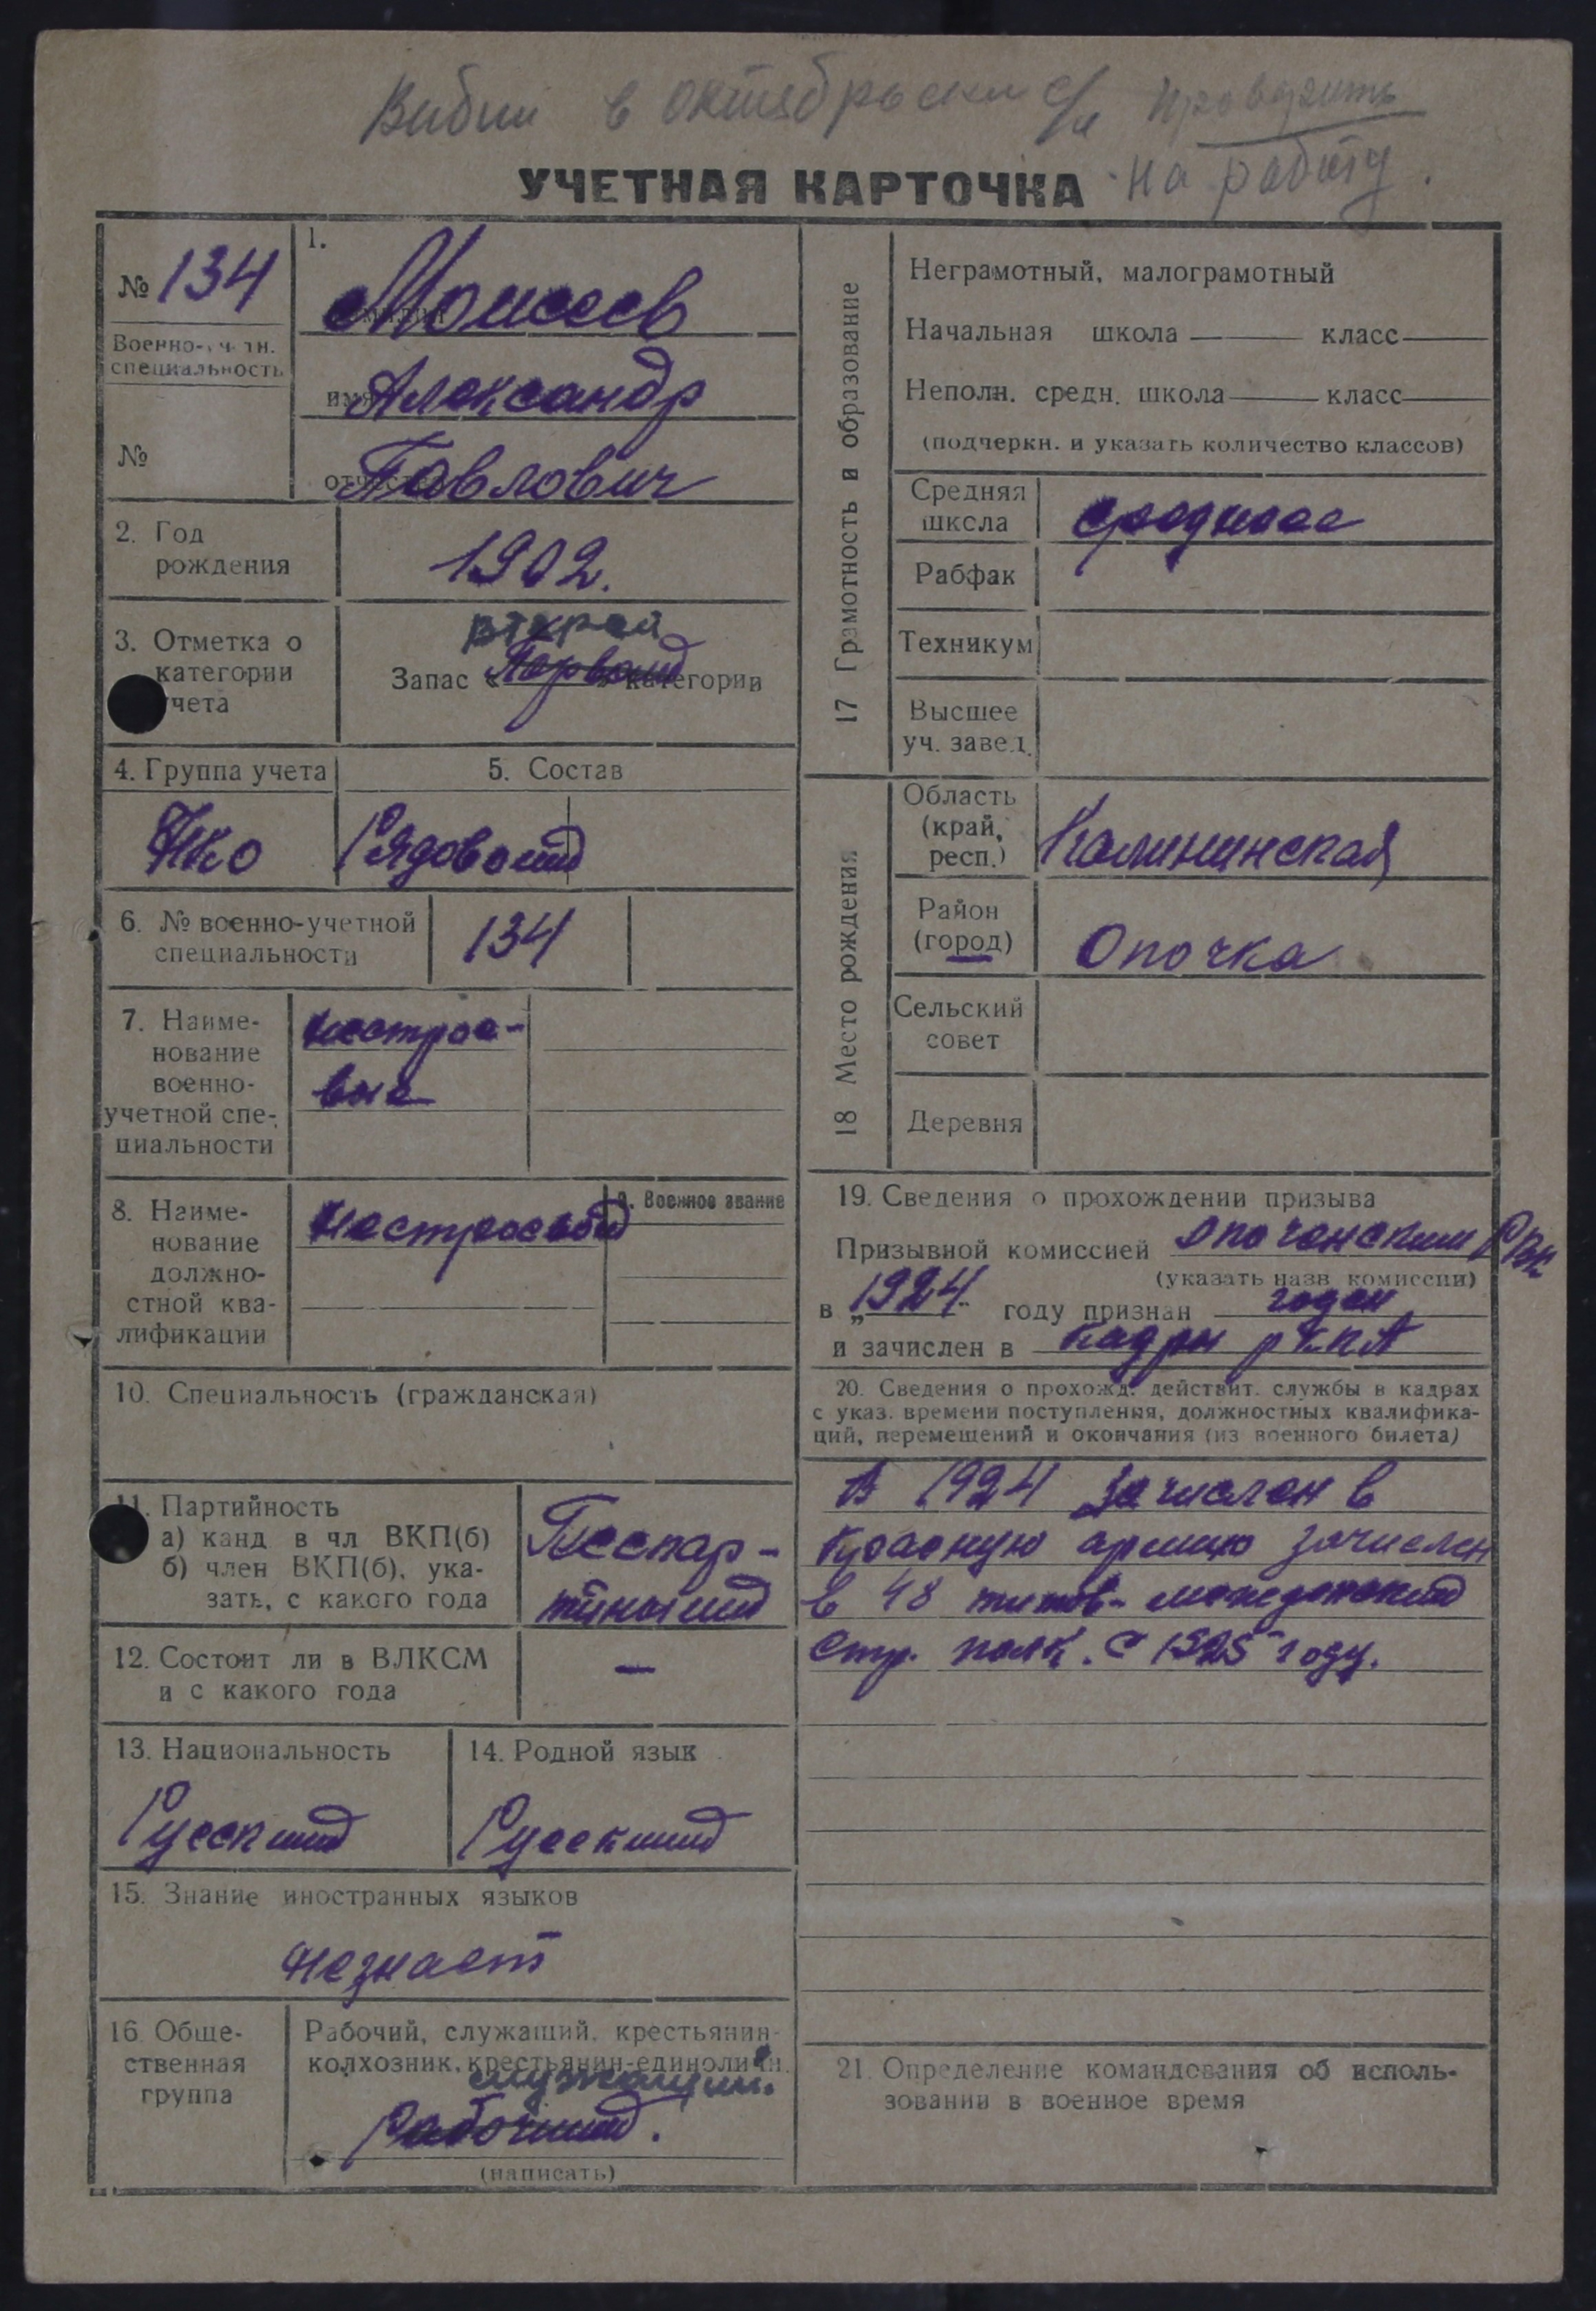 в октябрьский с/с проводить
на работу.
УЧЕТНАЯ КАРТОЧКА
№ 134
Военно-учетн.
специальность
№
1.
Моисеев
имя Александр
отчество Павлович
2. Год
рождения
1902.
3. Отметка о
категории
учета
второй
Запас « Первой » категории
4. Группа учета
НКО
5. Состав
Рядовой
6. № военно-учетной
специальности
134
7. Наиме-
нование
военно-
учетной спе-
циальности
нестрое-
вые
8. Наиме-
нование
должно-
стной ква-
лификации
нестроевой
9. Военное звание
10. Специальность (гражданская)
11. Партийность
а) канд в чл ВКП(б)
б) член ВКП(б), ука-
зать, с какого года
Беспар-
тийный
12. Состоит ли в ВЛКСМ
и с какого года
—
13. Национальность
Русский
14. Родной язык
Русский
15. Знание иностранных языков
незнает
16. Обще-
ственная
группа
Рабочий, служащий, крестьянин-
колхозник, крестьянин-единоличн.
служащий.
Рабочий.
(написать)
17 Грамотность и образование
Неграмотный, малограмотный
Начальная школа класс
Неполн. средн. школа класс
(подчеркн. и указать количество классов)
Средняя
школа
среднее
Рабфак
Техникум
Высшее
уч. завед.
18 Место рождения
Область
(край,
респ.)
Калининская
Район
(город)
Опочка
Сельский
совет
Деревня
19. Сведения о прохождении призыва
Призывной комиссией Опоченским РВК
(указать назв. комиссии)
в „1924“ году признан годен
и зачислен в кадры РККА
20. Сведения о прохожд. действит. службы в кадрах
с указ. времени поступления, должностных квалифика-
ций, перемещений и окончания (из военного билета)
В 1924 зачислен в
Красную армию зачислен
в 48
стр. полк. с 1925 году.
21. Определение командования об исполь-
зовании в военное время